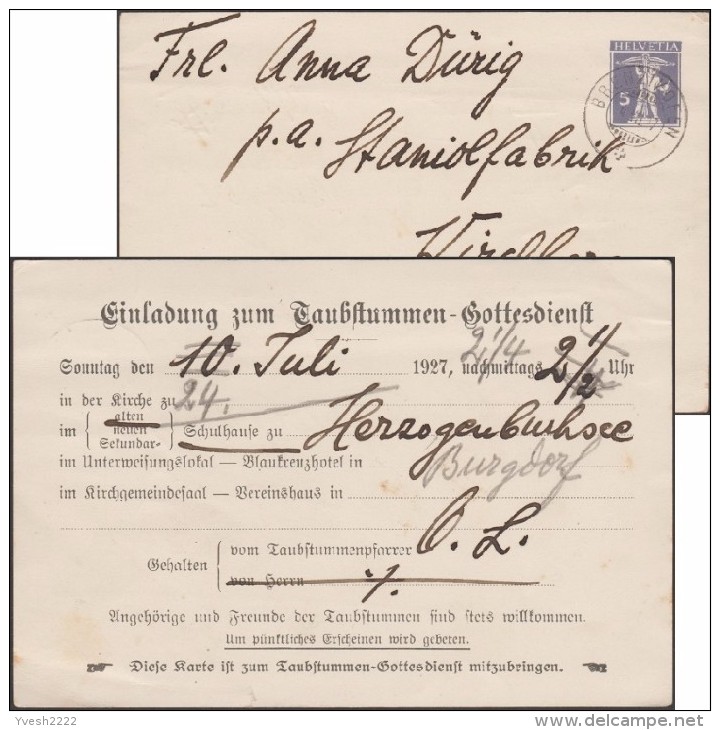 HELVETIA
5
Frl. Anna Dürig
p. a. Staniolfabrik
Einladung zum Taubstummen-Gottesdienst
Sonntag den 10. Juli 1927, nachmittags 2 1/2 Uhr
2 1/4
in der Kirche zu
24.
im { alten neuen Sekundar- } Schulhause zu Herzogenbuchsee
im Unterweisungslokal — Blaukreuzhotel in Burgdorf
im Kirchgemeindesaal — Vereinshaus in
Gehalten { vom Taubstummenpfarrer O. L.
von Herrn
Angehörige und Freunde der Taubstummen sind stets willkommen.
Um pünktliches Erscheinen wird gebeten.
Diese Karte ist zum Taubstummen-Gottesdienst mitzubringen.
Yvesh2222
delcampe.net